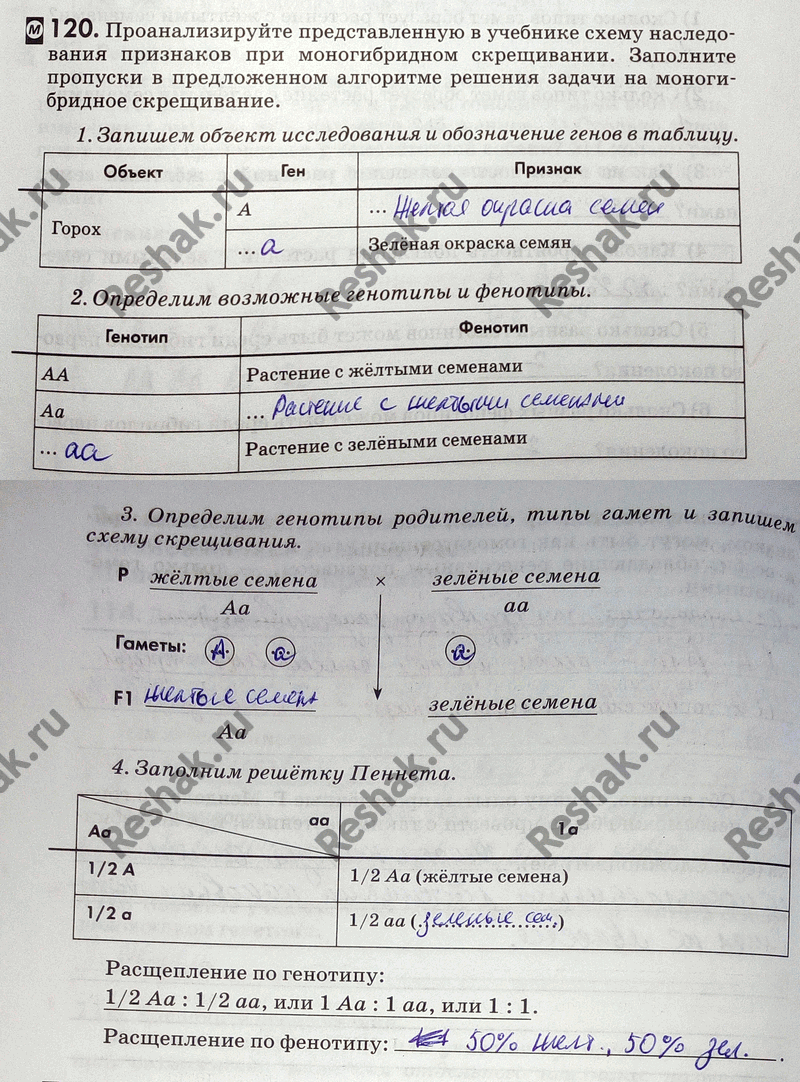 М 120. Проанализируйте представленную в учебнике схему наследо-
вания признаков при моногибридном скрещивании. Заполните
пропуски в предложенном алгоритме решения задачи на моноги-
бридное скрещивание.
1. Запишем объект исследования и обозначение генов в таблицу.
Объект Ген Признак
Горох A ... Желтая окраска семен
... a Зелёная окраска семян
2. Определим возможные генотипы и фенотипы.
Генотип Фенотип
AA Растение с жёлтыми семенами
Aa ... Растение с желтыми семенами
... aa Растение с зелёными семенами
3. Определим генотипы родителей, типы гамет и запишем
схему скрещивания.
P жёлтые семена × зелёные семена
Aa aa
Гаметы: A a a
F1 желтые семена зелёные семена
Aa
4. Заполним решётку Пеннета.
Aa aa 1a
1/2 A 1/2 Aa (жёлтые семена)
1/2 a 1/2 aa (зеленые сем.)
Расщепление по генотипу:
1/2 Aa : 1/2 aa, или 1 Aa : 1 aa, или 1 : 1.
Расщепление по фенотипу: 50% желт., 50% зел.
Reshak.ru